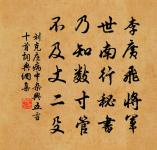 李廣飛將軍
世南行秘書
乃知數寸管
不及丈二殳
刘克庄病中雜興五言
十首詞典網集